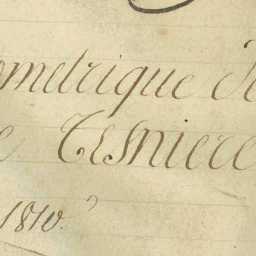 ometrique de
e Tesniere
1810.